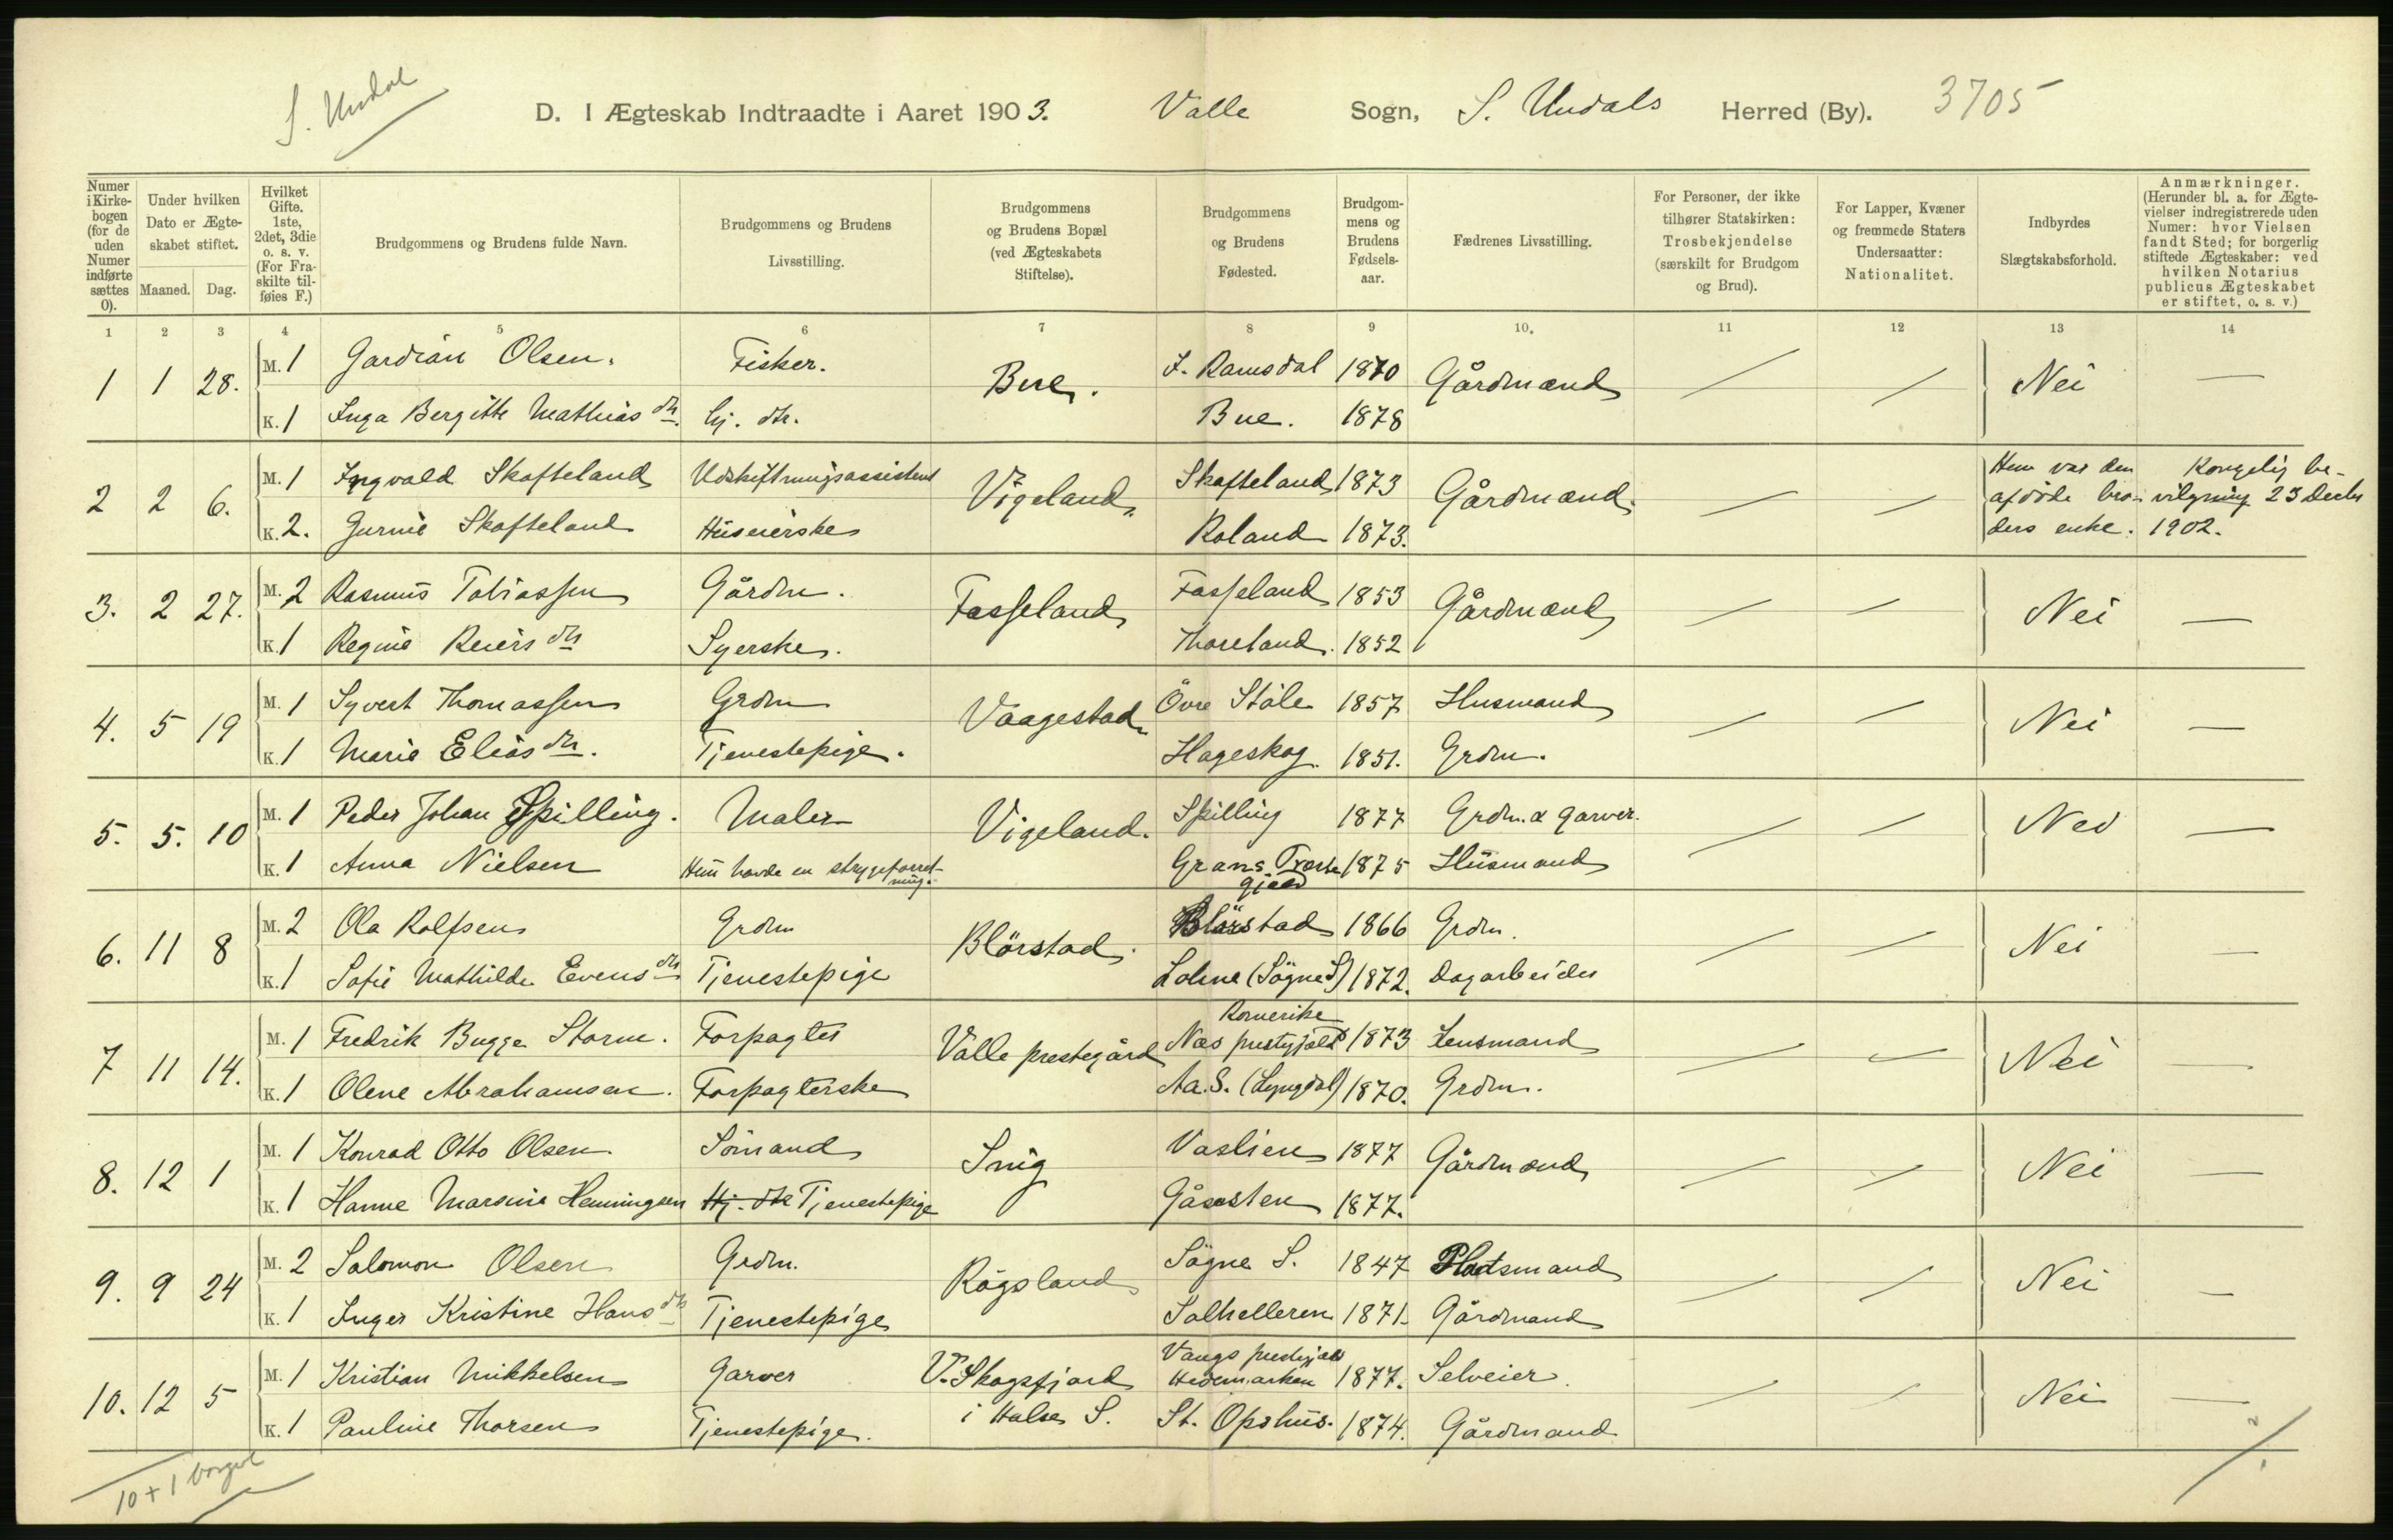 S. Undal
D. I Ægteskab Indtraadte i Aaret 1903. Valle Sogn, S. Undals Herred (By). 3705
Numer i Kirke-bogen (for de uden Numer indførte sættes 0).
Under hvilken Dato er Ægte-skabet stiftet.
Maaned. Dag.
Hvilket Gifte, 1ste, 2det, 3die o. s. v. (For Fra-skilte til-føies F.)
Brudgommens og Brudens fulde Navn.
Brudgommens og Brudens Livsstilling.
Brudgommens og Brudens Bopæl (ved Ægteskabets Stiftelse).
Brudgommens og Brudens Fødested.
Brudgom-mens og Brudens Fødsels-aar.
Fædrenes Livsstilling.
For Personer, der ikke tilhører Statskirken: Trosbekjendelse (særskilt for Brudgom og Brud).
For Lapper, Kvæner og fremmede Staters Undersaatter: Nationalitet.
Indbyrdes Slægtskabsforhold.
Anmærkninger. (Herunder bl. a. for Ægte-vielser indregistrerede uden Numer: hvor Vielsen fandt Sted; for borgerlig stiftede Ægteskaber: ved hvilken Notarius publicus Ægteskabet er stiftet, o. s. v.)
1 2 3 4 5 6 7 8 9 10. 11 12 13 14
1 1 28. M. 1 Gardian Olsen. Fisker. Bue. F. Ramsdal 1870 Gårdmænd Nei —
K. 1 Inga Bergitte Mathias dtr. hj. dtr. Bue. 1878
2 2 6. M. 1 Ingvald Skofteland Udskiftningsassistent Vigeland. Skofteland 1873 Gårdmænd. Hun var den afdøde bro-ders enke. Kongelig be-vilgning 23 Decbr 1902.
K. 2. Gurine Skofteland Huseierske Roland 1873.
3. 2 27. M. 2 Rasmus Tobiassen Gårdm. Fasseland Fasseland 1853 Gårdmænd Nei —
K. 1 Regine Reiers dtr Syerske. Thoreland. 1852
4. 5 19 M. 1 Syvert Thomassen Grdm Vaagestad Övre Ståle 1857 Husmand Nei —
K. 1 Marie Elias dtr. Tjenestepige. Hageskog. 1851. Grdm.
5. 5. 10 M. 1 Peder Johan Spilling. Maler Vigeland. Spilling 1877 Grdm. & garver. Nei —
K. 1 Anna Nielsen Hun havde en strygeforret-ning. Grans Præste gjeld 1875 Husmand
6. 11 8 M. 2 Ola Rolfsen Grdm Blörstad. Blörstad 1866 Grdm. Nei —
K. 1 Sofie Mathilde Evens dtr Tjenestepige Lohne (Sögne S) 1872. Dagarbeider
7 11 14. M. 1 Fredrik Bugge Storm. Forpagter Valle prestegård Romerike Næs prestgjæld 1873 Lensmand Nei —
K. 1 Olene Abrahamsen. Forpagterske Aa. S. (Lyngdal) 1870. Grdm.
8. 12 1 M. 1 Konrad Otto Olsen Sömand Snig Vaslien 1877 Gårdmænd Nei —
K. 1 Hanne Marine Henningsen Hj. dtr Tjenestepige Gåsesten 1877.
9. 9 24 M. 2 Salomon Olsen Grdm. Rögsland Sögne S. 1847 Pladsmand Nei —
K. 1 Inger Kristine Hans dtr Tjenestepige Salhelleren 1871. Gårdmand
10. 12 5 M. 1 Kristian Mikkelsen Garver V. Skogsfjord i Halse S. Vangs prestegjæld Hedemarken 1877. Selveier. Nei —
K. 1 Pauline Thorsen Tjenestepige. St. Opshus. 1874. Gårdmand
10 + 1 borgerl